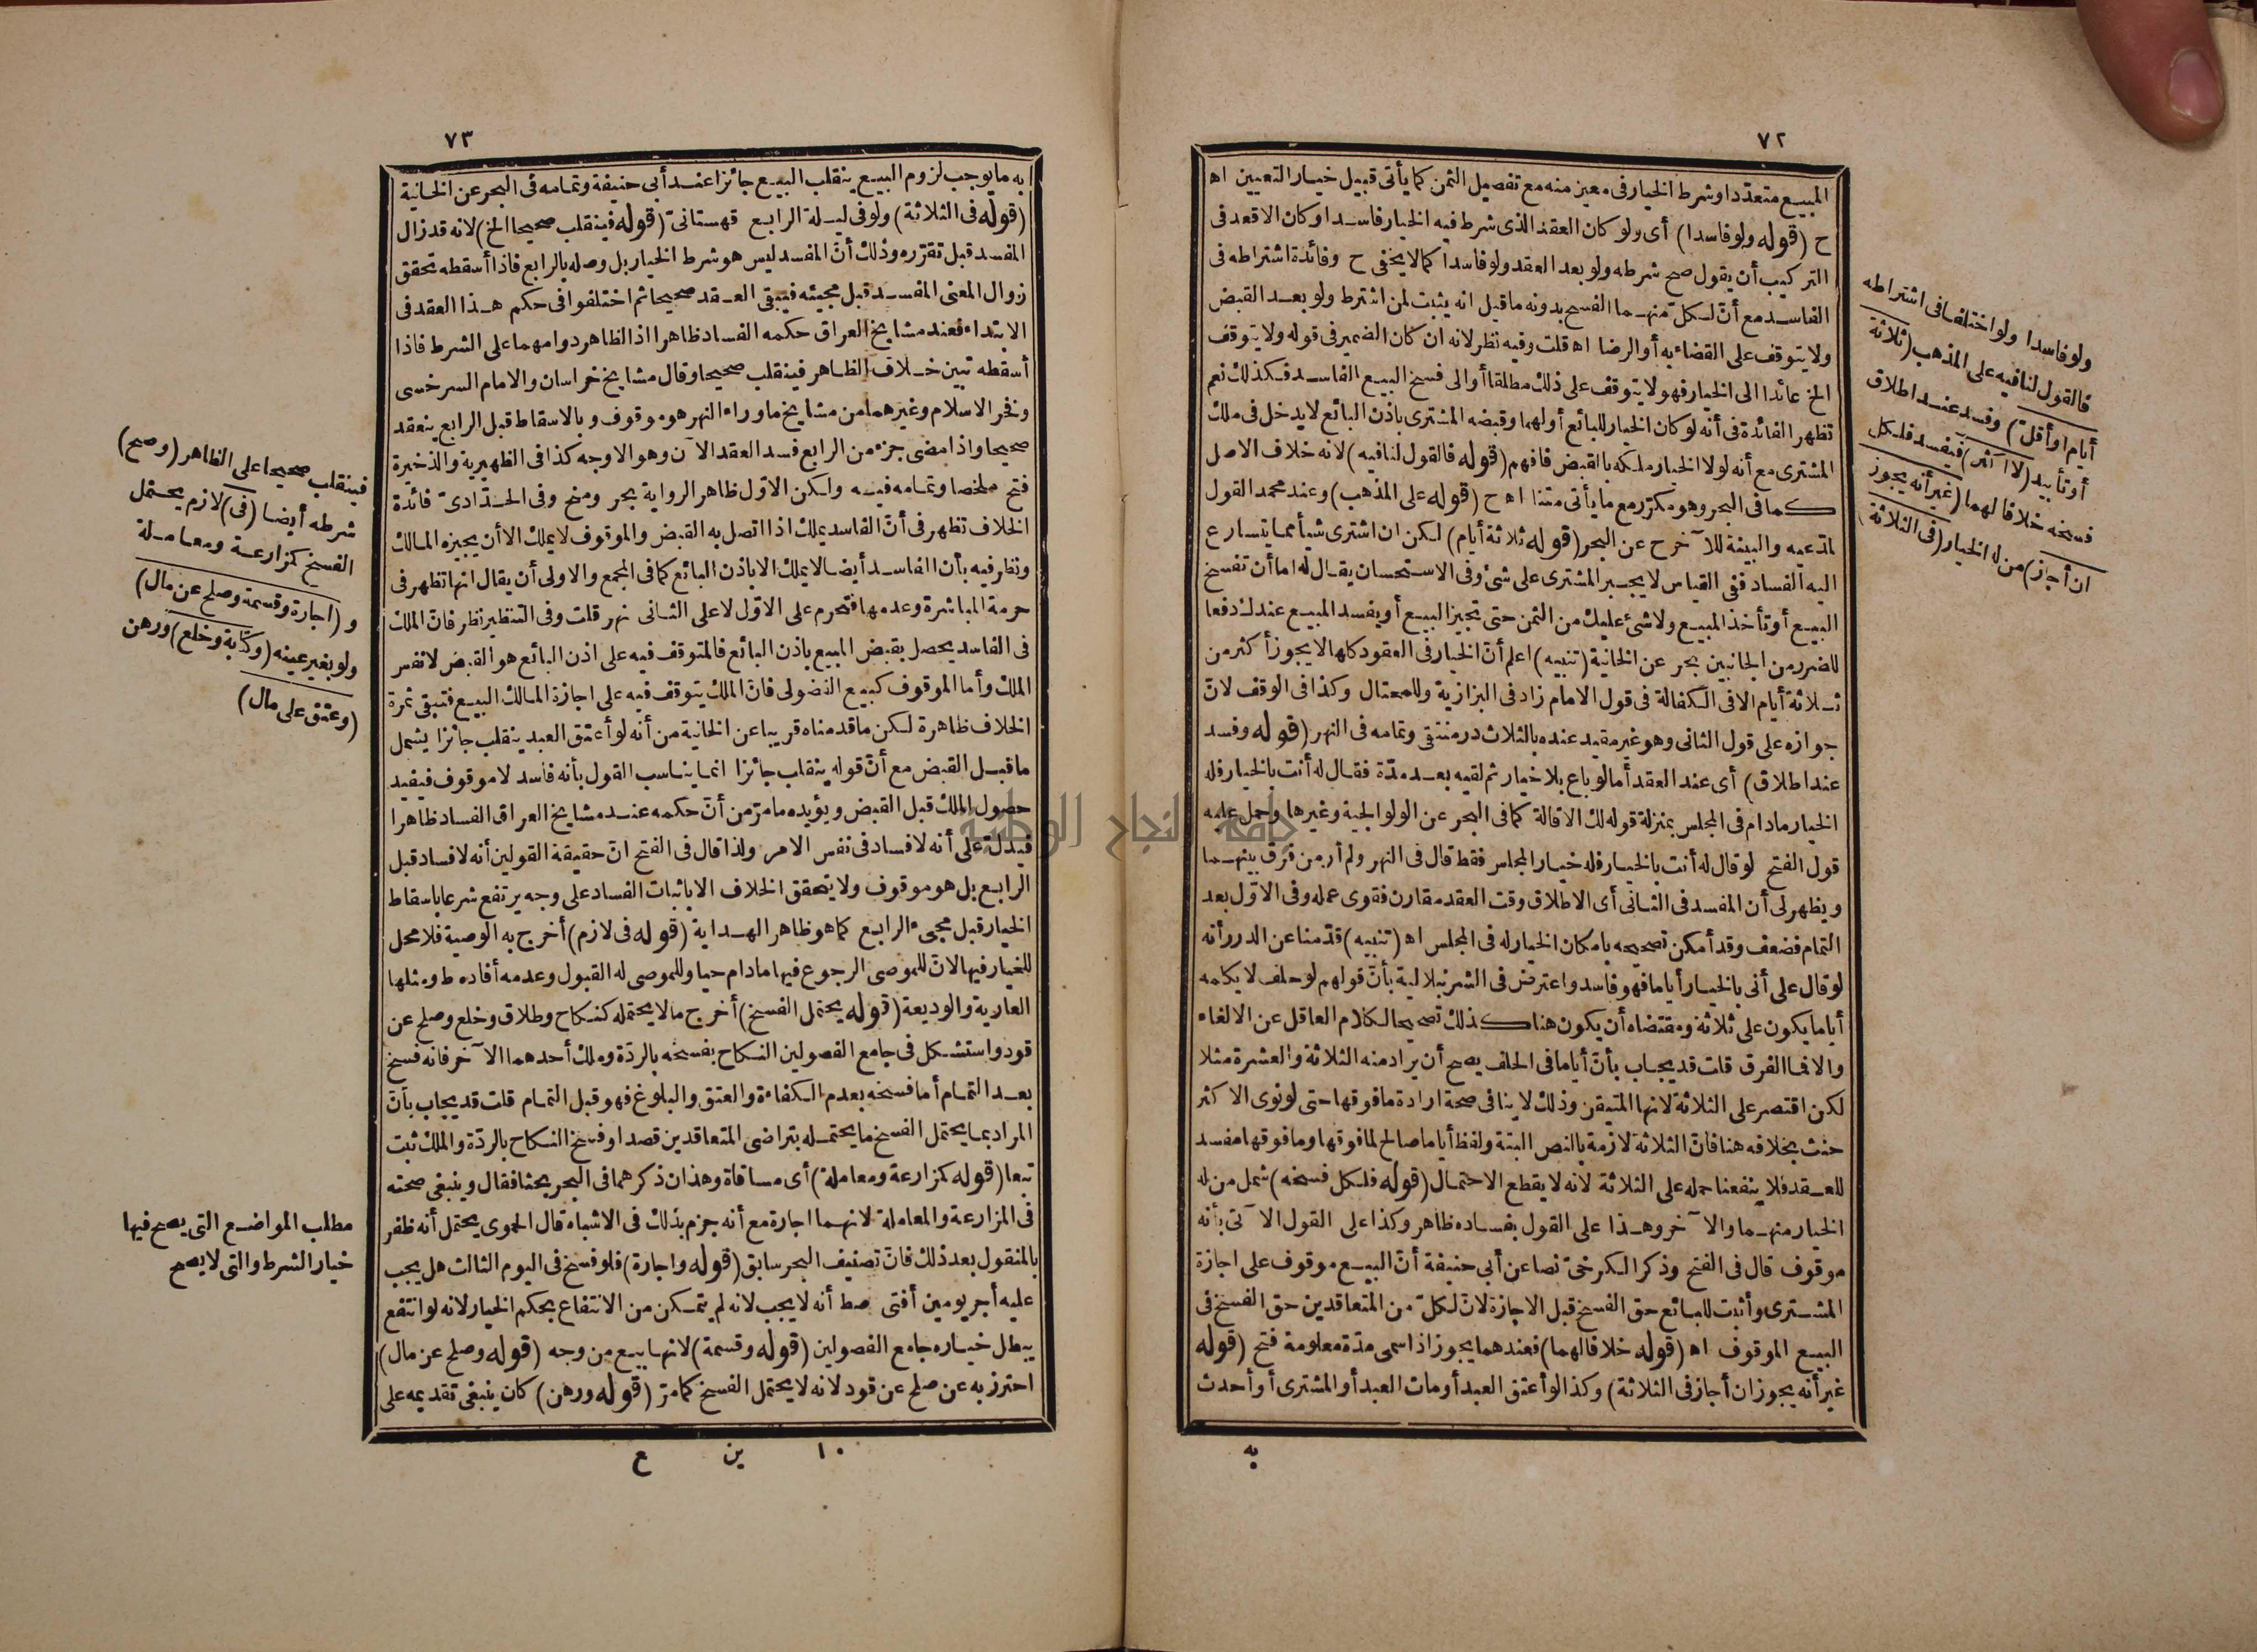 ٧٢
المبيع متعددا وشرط الخيار في معين منه مع تفصيل الثمن كما يأتى قبيل خيار التعيين اه
ح (قوله ولو فاسدا) أى ولو كان العقد الذى شرط فيه الخيار فاسدا وكان الاقعد فى
التركيب أن يقول صح شرطه ولو بعد العقد ولو فاسدا كما لا يخفى ح وفائدة اشتراطه فى
الفاسد مع أنّ لكلّ منهما الفسخ بدونه ما قيل انه يثبت لمن اشترط ولو بعد القبض
ولا يتوقف على القضاء به أو الرضا اه قلت وفيه نظر لانه ان كان الضمير فى قوله ولا يتوقف
الخ عائدا الى الخيار فهو لا يتوقف على ذلك مطلقا أو الى فسخ البيع الفاسد فكذلك نعم
تظهر الفائدة فى أنه لو كان الخيار للبائع أو لهما وقبضه المشترى باذن البائع لا يدخل فى ملك
المشترى مع أنه لولا الخيار ملكه بالقبض فافهم (قوله فالقول لنافيه) لانه خلاف الاصل
كما فى البحر وهو مكرّر مع ما يأتى متنا اه ح (قوله على المذهب) وعند محمد القول
لمدّعيه والبينة للآخر ح عن البحر (قوله ثلاثة أيام) لكن ان اشترى شيأ مما يتسارع
اليه الفساد ففى القياس لا يجبر المشترى على شئ وفى الاستحسان يقال له اما أن تفسخ
البيع أو تأخذ المبيع ولا شئ عليك من الثمن حتى تجيز البيع أو يفسد المبيع عندك دفعا
للضرر من الجانبين بحر عن الخانية (تنبيه) اعلم أنّ الخيار فى العقود كلها لا يجوز أكثر من
ثلاثة أيام الا فى الكفالة فى قول الامام زاد فى البزازية وللمحتال وكذا فى الوقف لانّ
جوازه على قول الثانى وهو غير مقيد عنده بالثلاث در منتقى وتمامه فى النهر (قوله وفسد
عند اطلاق) أى عند العقد أما لو باع بلا خيار ثم لقيه بعد مدّة فقال له أنت بالخيار فله
الخيار مادام فى المجلس بمنزلة قوله لك الاقالة كما فى البحر عن الولوالجية وغيرها وحمل عليه
قول الفتح لو قال له أنت بالخيار فله خيار المجلس فقط قال فى النهر ولم أر من فرّق بينهما
ويظهر لى أن المفسد فى الثانى أى الاطلاق وقت العقد مقارن فقوى عمله وفى الاوّل بعد
التمام فضعف وقد أمكن تصحيحه بامكان الخيار له فى المجلس اه (تنبيه) قدّمنا عن الدرر أنه
لو قال على أنى بالخيار أياما فهو فاسد واعترض فى الشرنبلالية بأنّ قولهم لو حلف لا يكلمه
أياما يكون على ثلاثة ومقتضاه أن يكون هنا كذلك تصحيحا لكلام العاقل عن الالغاء
والا فما الفرق قلت قد يجاب بأنّ أياما فى الحلف يصح أن يراد منه الثلاثة والعشرة مثلا
لكن اقتصر على الثلاثة لانها المتيقن وذلك لا ينافى صحة ارادة ما فوقها حتى لو نوى الاكثر
حنث بخلافه هنا فانّ الثلاثة لازمة بالنص البتة ولفظ أياما صالح لما فوقها وما فوقها مفسد
للعقد فلا ينفعنا حمله على الثلاثة لانه لا يقطع الاحتمال (قوله فلكل فسخه) شمل من له
الخيار منهما والآخر وهذا على القول بفساده ظاهر وكذا على القول الآتى بأنه
موقوف قال فى الفتح وذكر الكرخىّ نصا عن أبى حنيفة أنّ البيع موقوف على اجازة
المشترى وأثبت للبائع حق الفسخ قبل الاجازة لانّ لكلّ من المتعاقدين حق الفسخ فى
البيع الموقوف اه (قوله خلافا لهما) فعندهما يجوز اذا سمى مدّة معلومة فتح (قوله
غير أنه يجوز ان أجاز فى الثلاثة) وكذا لو أعتق العبد أو مات العبد أو المشترى أو أحدث
به
ولو فاسدا ولو اختلفا فى اشتراطه
فالقول لنافيه على المذهب (ثلاثة
أيام أو أقلّ) وفسد عند اطلاق
أو تأبيد (لا أكثر) فيفسد فلكل
فسخه خلافا لهما (غير أنه يجوز
ان أجاز) من له الخيار (فى الثلاثة)
٧٣
به ما يوجب لزوم البيع ينقلب البيع جائزا عند أبى حنيفة وتمامه فى البحر عن الخانية
(قوله فى الثلاثة) ولو فى ليلة الرابع قهستانىّ (قوله فينقلب صحيحا الخ) لانه قد زال
المفسد قبل تقرّره وذلك أنّ المفسد ليس هو شرط الخيار بل وصله بالرابع فاذا أسقطه تحقق
زوال المعنى المفسد قبل مجيئه فيبقى العقد صحيحا ثم اختلفوا فى حكم هذا العقد فى
الابتداء فعند مشايخ العراق حكمه الفساد ظاهرا اذ الظاهر دوامهما على الشرط فاذا
أسقطه تبين خلاف الظاهر فينقلب صحيحا وقال مشايخ خراسان والامام السرخسى
وفخر الاسلام وغيرهما من مشايخ ما وراء النهر هو موقوف وبالاسقاط قبل الرابع ينعقد
صحيحا واذا مضى جزء من الرابع فسد العقد الآن وهو الاوجه كذا فى الظهيرية والذخيرة
فتح ملخصا وتمامه فيه ولكن الاوّل ظاهر الرواية بحر ومنح وفى الحدّادىّ فائدة
الخلاف تظهر فى أنّ الفاسد يملك اذا اتصل به القبض والموقوف لا يملك الا أن يجيزه المالك
ونظر فيه بأن الفاسد أيضا لا يملك الا باذن البائع كما فى المجمع والاولى أن يقال انها تظهر فى
حرمة المباشرة وعدمها فتحرم على الاوّل لا على الثانى نهر قلت وفى التنظير نظر فانّ الملك
فى الفاسد يحصل بقبض المبيع باذن البائع فالمتوقف فيه على اذن البائع هو القبض لا نفس
الملك وأما الموقوف كبيع الفضولى فانّ الملك يتوقف فيه على اجازة المالك البيع فتبقى ثمرة
الخلاف ظاهرة لكن ما قدمناه قريبا عن الخانية من أنه لو أعتق العبد ينقلب جائزا يشمل
ما قبل القبض مع أنّ قوله ينقلب جائزا انما يناسب القول بأنه فاسد لا موقوف فيفيد
حصول الملك قبل القبض ويؤيده ما مرّ من أنّ حكمه عند مشايخ العراق الفساد ظاهرا
فيدلّ على أنه لا فساد فى نفس الامر ولذا قال فى الفتح انّ حقيقة القولين أنه لا فساد قبل
الرابع بل هو موقوف ولا يتحقق الخلاف الا باثبات الفساد على وجه يرتفع شرعا باسقاط
الخيار قبل مجىء الرابع كما هو ظاهر الهداية (قوله فى لازم) أخرج به الوصية فلا محل
للخيار فيها لانّ للموصى الرجوع فيها مادام حيا وللموصى له القبول وعدمه أفاده ط ومثلها
العارية والوديعة (قوله يحتمل الفسخ) أخرج ما لا يحتمله كنكاح وطلاق وخلع وصلح عن
قود واستشكل فى جامع الفصولين النكاح بفسخه بالردّة وملك أحدهما الآخر فانه فسخ
بعد التمام أما فسخه بعدم الكفاءة والعتق والبلوغ فهو قبل التمام قلت قد يجاب بأنّ
المراد بما يحتمل الفسخ ما يحتمله بتراضى المتعاقدين قصدا وفسخ النكاح بالردّة والملك ثبت
تبعا (قوله كمزارعة ومعاملة) أى مساقاة وهذان ذكرهما فى البحر بحثا فقال وينبغى صحته
فى المزارعة والمعاملة لانهما اجارة مع أنه جزم بذلك فى الاشباه قال الحموى يحتمل أنه ظفر
بالمنقول بعد ذلك فانّ تصنيف البحر سابق (قوله واجارة) فلو فسخ فى اليوم الثالث هل يجب
عليه أجر يومين أفتى صط أنه لا يجب لانه لم يتمكن من الانتفاع بحكم الخيار لانه لو انتفع
يبطل خياره جامع الفصولين (قوله وقسمة) لانها بيع من وجه (قوله وصلح عن مال)
احترز به عن صلح عن قود لانه لا يحتمل الفسخ كما مرّ (قوله ورهن) كان ينبغى تقديمه على
١٠ ين ع
فينقلب صحيحا على الظاهر (وصح)
شرطه أيضا (فى) لازم يحتمل
الفسخ كمزارعة ومعاملة
و (اجارة وقسمة وصلح عن مال)
ولو بغير عينه (وكتابة وخلع) ورهن
(وعتق على مال)
مطلب المواضع التى يصح فيها
خيار الشرط والتى لا يصح
جامعة النجاح الوطنية